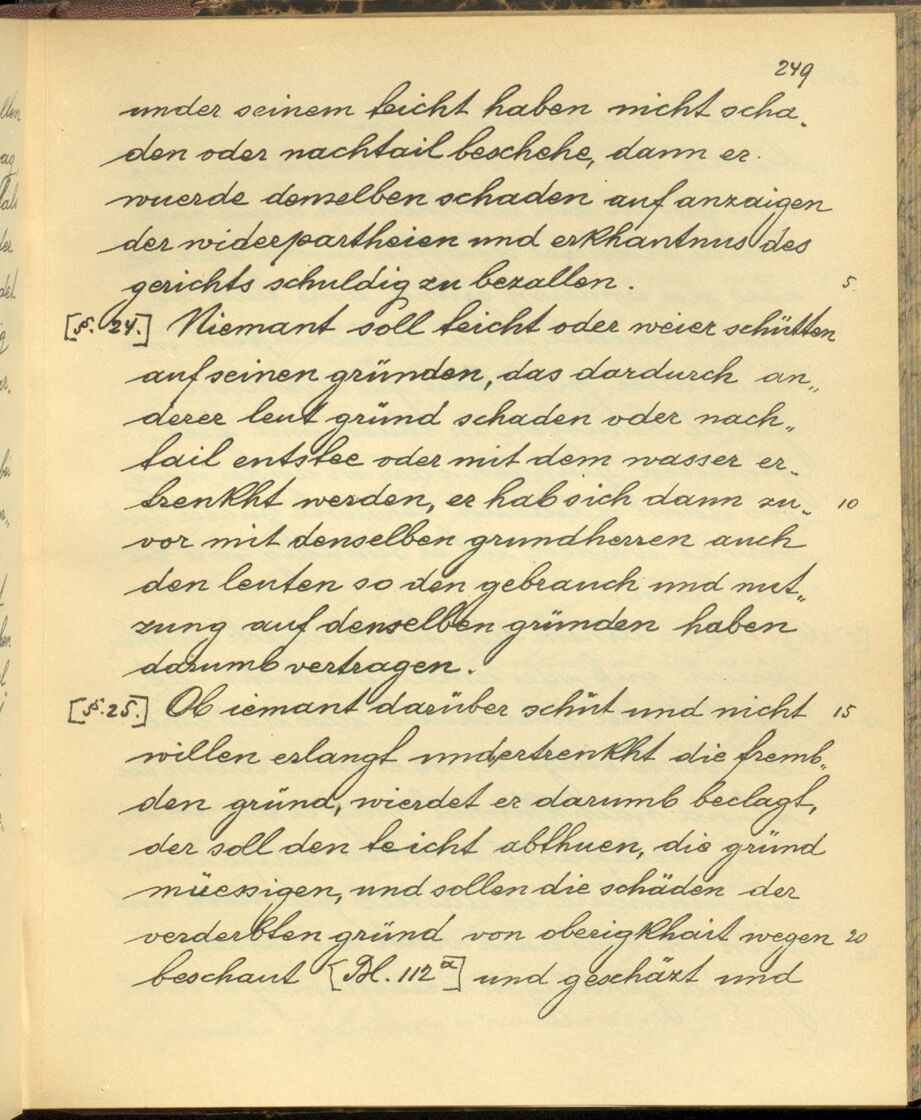 249
under seinem teicht haben nicht scha„
den oder nachtail beschehe, dann er
wuerde demselben schaden auf anzaigen
der widerpartheien und erkhantnus des
gerichts schuldig zu bezallen. 5
[§. 24.] Niemant soll teicht oder weier schütten
auf seinen gründen, das dardurch an„
derer leut gründ schaden oder nach„
tail entstee oder mit dem wasser er„
trenkht werden, er hab sich dann zu„ 10
vor mit denselben grundherren auch
den leuten so den gebrauch und nut„
zung auf denselben gründen haben
darumb vertragen.
[§. 25.] Ob iemant darüber schüt und nicht 15
willen erlangt undertrenkht die fremb„
den gründ, wierdet er darumb beclagt,
der soll den teicht abthuen, die gründ
müessigen, und sollen die schäden der
verderbten gründ von oberigkhait wegen 20
beschaut [Bl. 112ª] und geschäzt und